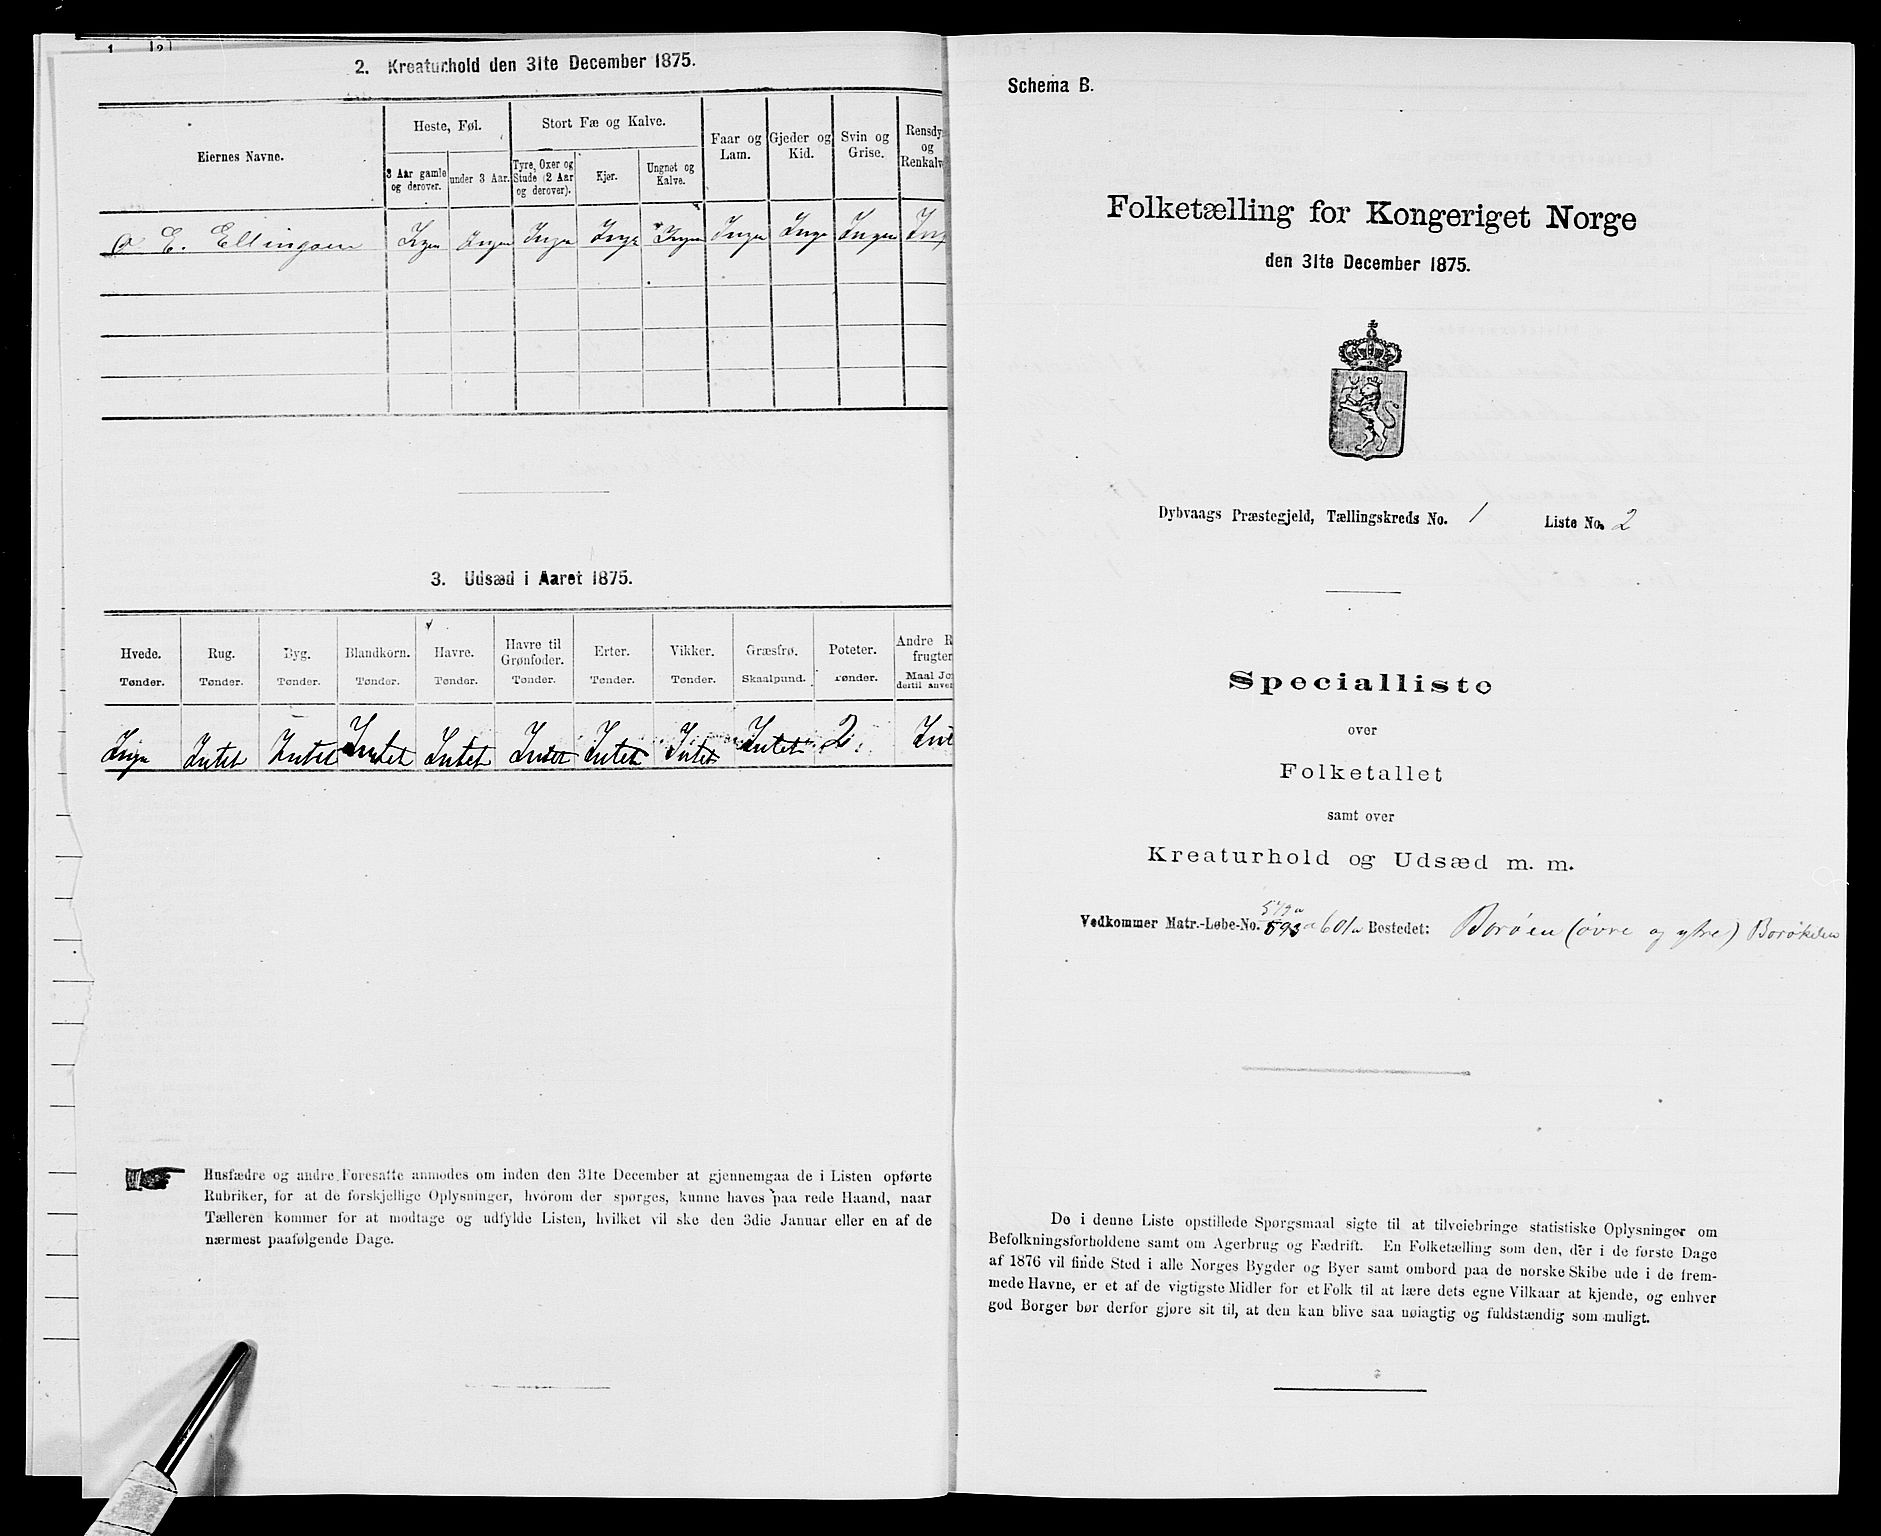 1 2
2. Kreaturhold den 31te December 1875.
Eiernes Navne.
Heste, Føl.
Stort Fæ og Kalve.
3 Aar gamle og derover.
under 3 Aar.
Tyre, Oxer og Stude (2 Aar og derover).
Kjør.
Ungnet og Kalve.
Faar og Lam.
Gjeder og Kid.
Svin og Grise.
Rensdy og Renkalv
E. Ellingsen Ingen Ingen Ingen Inge Ingen Ingen Inge Ingen Ing
3. Udsæd i Aaret 1875.
Hvede. Rug. Byg. Blandkorn. Havre. Havre til Grønfoder. Erter. Vikker. Græsfrø. Poteter. Andre R frugter
Tønder. Tønder. Tønder. Tønder. Tønder. Tønder. Tønder. Tønder. Skaalpund. Tønder. Maal Jo dertil anve
Inge Intet Intet Intet Intet Intet Intet Intet Intet 2. Int
Husfædre og andre Foresatte anmodes om inden den 31te December at gjennemgaa de i Listen opførte
Rubriker, for at de forskjellige Oplysninger, hvorom der spørges, kunne haves paa rede Haand, naar
Tælleren kommer for at modtage og udfylde Listen, hvilket vil ske den 3die Januar eller en af de
nærmest paafølgende Dage.
Schema B.
Folketælling for Kongeriget Norge
den 31te December 1875.
Dybvaags Præstegjeld, Tællingskreds No. 1 Liste No. 2
Specialliste
over
Folketallet
samt over
Kreaturhold og Udsæd m. m.
Vedkommer Matr.-Løbe-No. 593a 601a Bostedet: Borøen (øvre og ytre) Borøkilen
De i denne Liste opstillede Spørgsmaal sigte til at tilveiebringe statistiske Oplysninger om
Befolkningsforholdene samt om Agerbrug og Fædrift. En Folketælling som den, der i de første Dage
af 1876 vil finde Sted i alle Norges Bygder og Byer samt ombord paa de norske Skibe ude i de frem-
mede Havne, er et af de vigtigste Midler for et Folk til at lære dets egne Vilkaar at kjende, og enhver
god Borger bør derfor gjøre sit til, at den kan blive saa nøiagtig og fuldstændig som muligt.